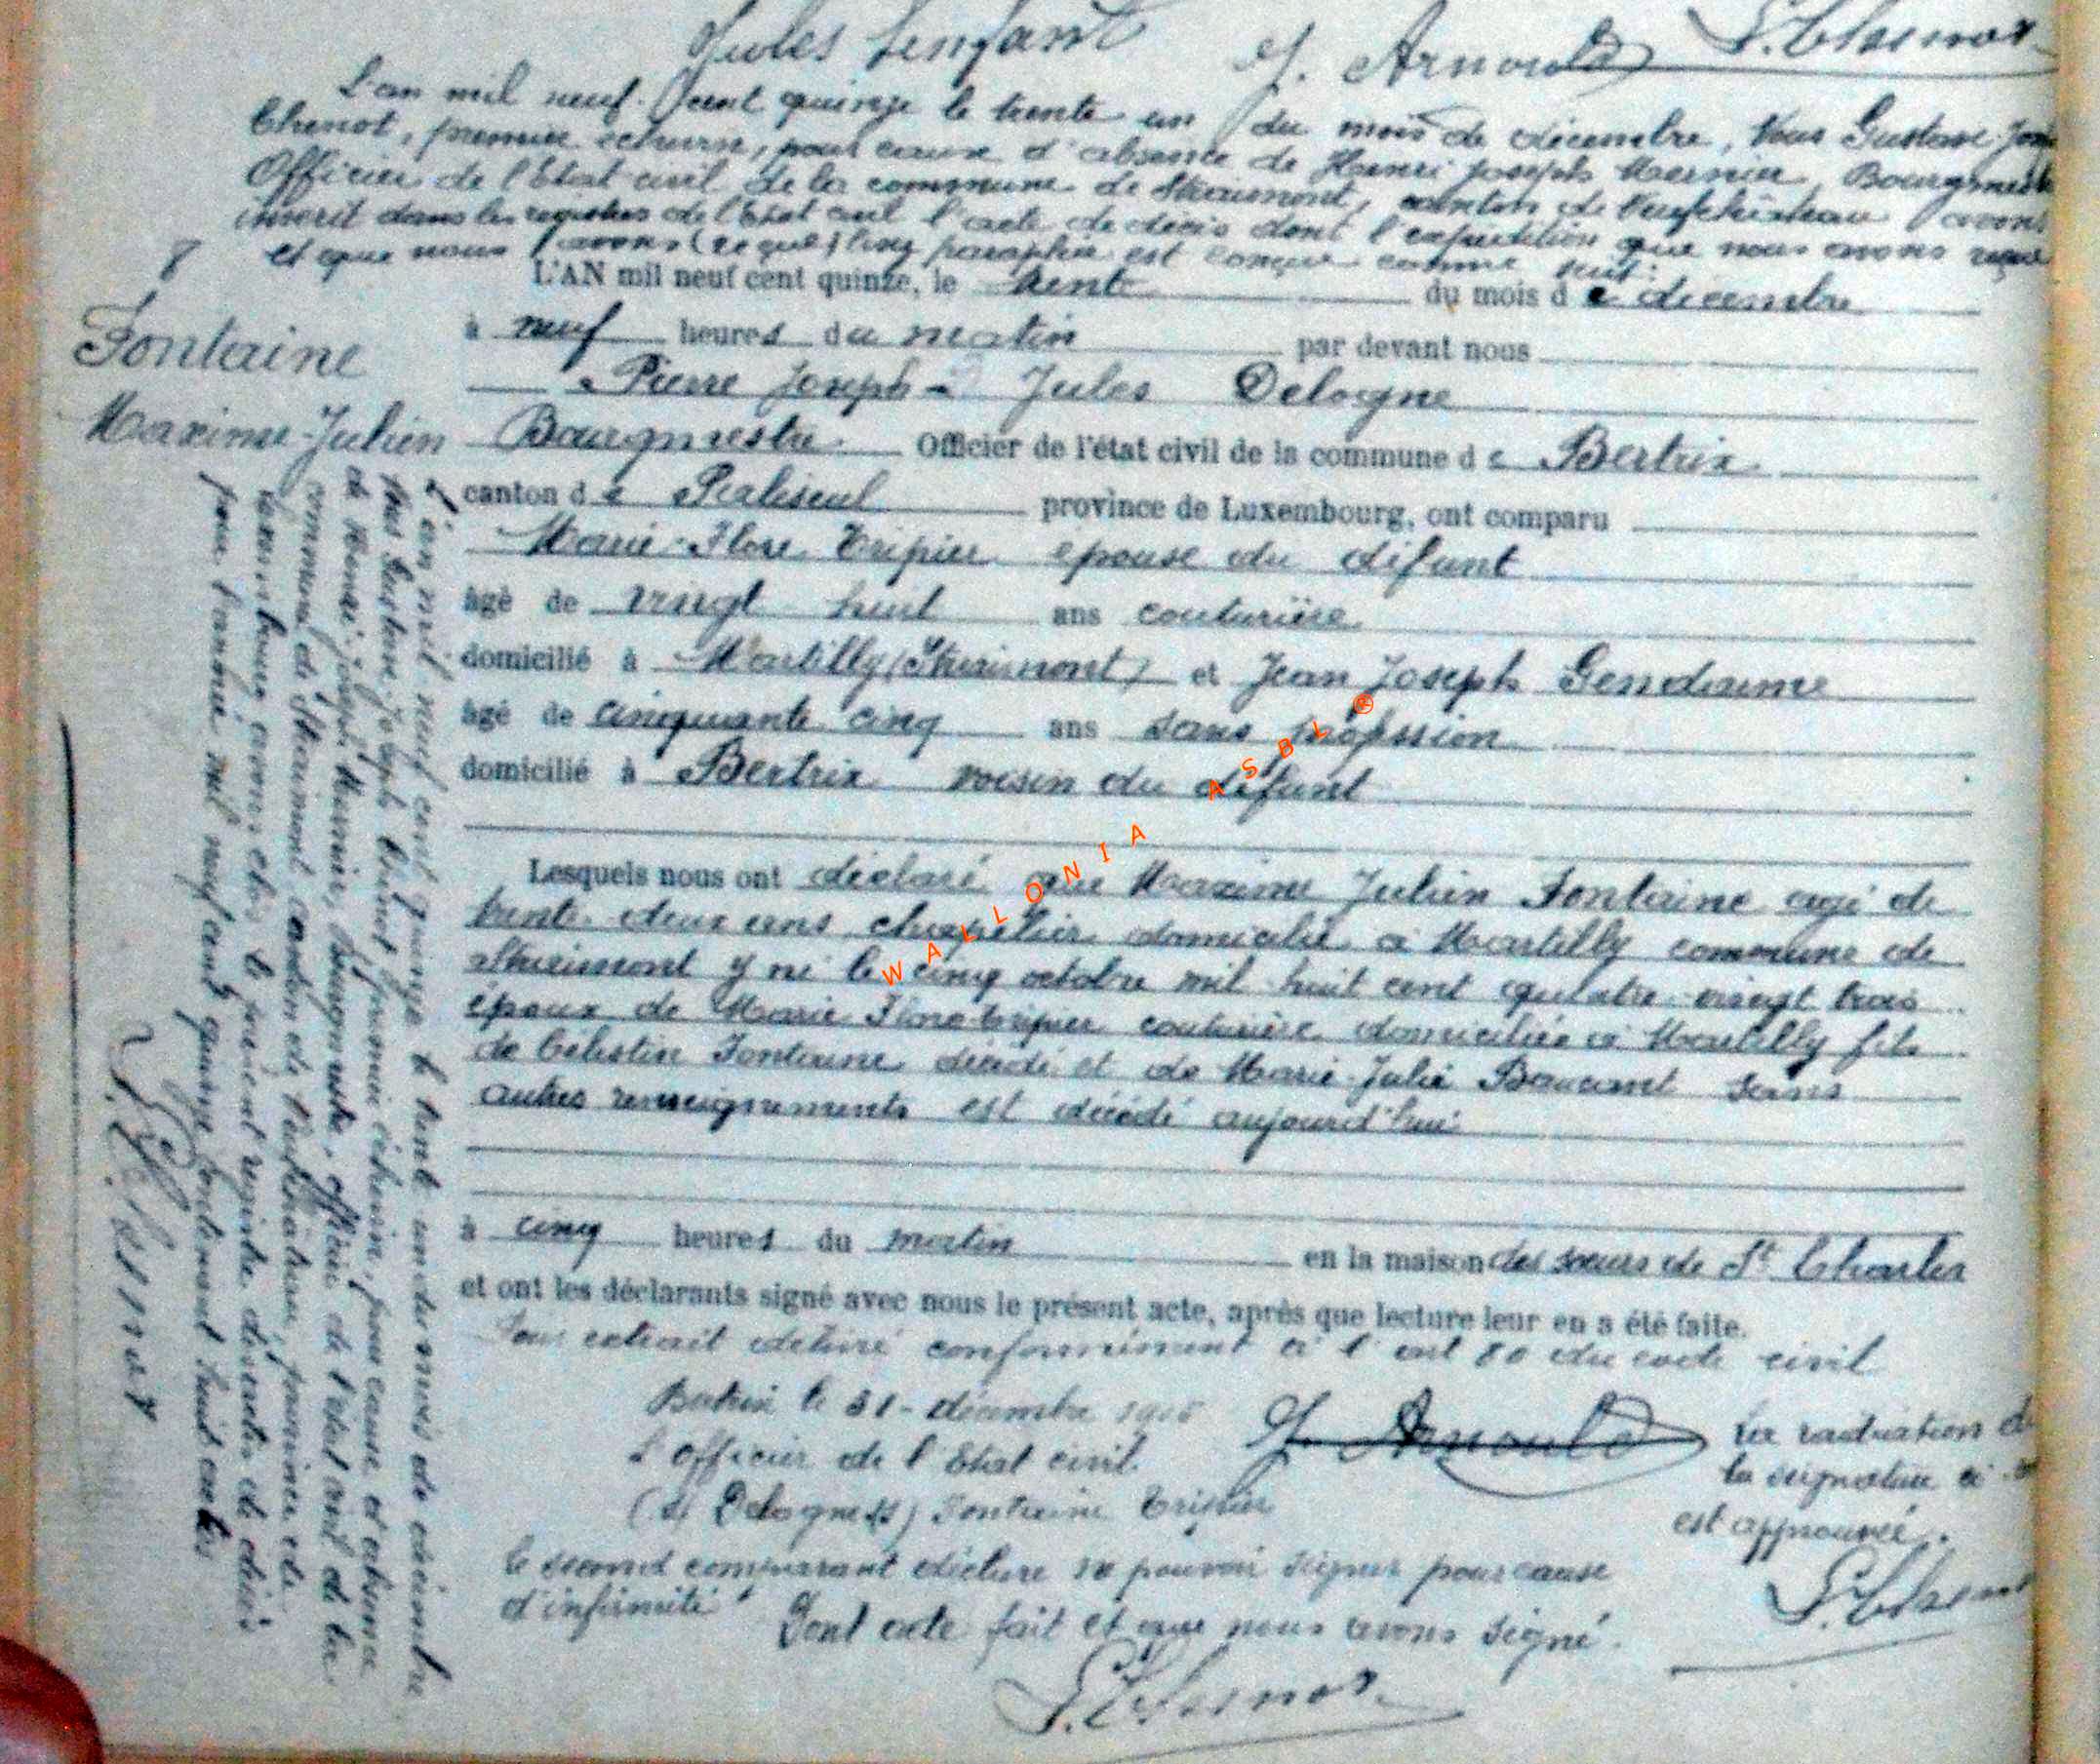 Jules Lenfant
J. Arnould
L'an mil neuf cent quinze le trente un du mois de décembre, Nous Gustave
premier échevin, pour cause d'absence de Henri Joseph Mernier, Bourgmestre
Officier de l'Etat civil de la commune de Straimont, canton de Neufchâteau avons
inscrit dans les registres de l'Etat civil l'acte de décès dont l'expédition que nous avons reçue
et que nous avons paraphée est conçue comme suit:
8
L'AN mil neuf cent quinze, le trente du mois de décembre
Fontaine
Maxime-Julien
à neuf heures du matin par devant nous
Pierre Joseph - Jules Delogne
Bourgmestre Officier de l'état civil de la commune de Bertrix
canton de Paliseul province de Luxembourg, ont comparu
Marie-Flore Tripier épouse du défunt
âgé de vingt huit ans couturière
domicilié à Martilly (Straimont) et Jean Joseph Gendarme
âgé de cinquante cinq ans sans profession
domicilié à Bertrix voisin du défunt
Lesquels nous ont déclaré que Maxime Julien Fontaine agé de
trente deux ans domicilié à Martilly commune de
Straimont y né le cinq octobre mil huit cent quatre vingt trois
époux de Marie Flore Tripier couturière domiciliée à Martilly fils
de Célestin Fontaine décédé et de Marie-Julie Baucant sans
autres renseignements est décédé aujourd'hui
à cinq heures du matin en la maison des sœurs de St Charles
et ont les déclarants signé avec nous le présent acte, après que lecture leur en a été faite.
Pour extrait délivré conformément à l'art 80 du code civil
Bertrix le 31 - décembre 1915
L'officier de l'Etat civil.
(s) Delogne (s) Fontaine Tripier
J. Arnould
La radiation de
la signature ci
est approuvée.
le second comparant déclare ne pouvoir signer pour cause
d'infirmité
Dont acte fait et que nous avons signé.
L'an mil neuf cent quinze le trente un du mois de décembre
Nous Gustave Joseph premier échevin, pour cause d'absence
de Henri-Joseph Mernier, Bourgmestre, officier de l'état civil de la
commune de Straimont canton de Neufchâteau, province de
Luxembourg avons clos le présent registre des actes de décès
pour l'année mil neuf cent quinze contenant huit actes
WALLONIA ASBL ®